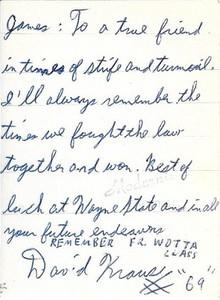 James: To a true friend
in times of strife and turmoil.
I'll always remember the
times we fought the law
together and won. Best of
luck at Wayne State and in all
your future endeavors
REMEMBER F2 WOTTA
CLASS
David Kraus
"69"